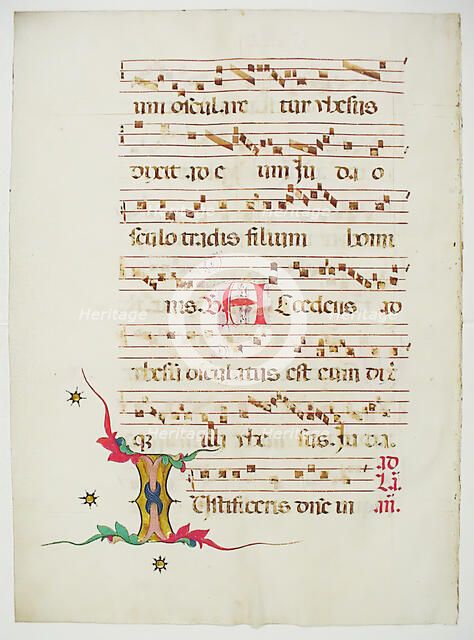 um oscular etur yhesus
dixit ad e um Ju da o
sculo tradis filium homi
nis. A Ccedens ad
yhesu osculatus est eum dix
q illi yhe sus. Ju da.
ad
La
I ustificeris dñe in m.
Heritage
Heritage
Heritage
Heritage
Heritage
Heritage